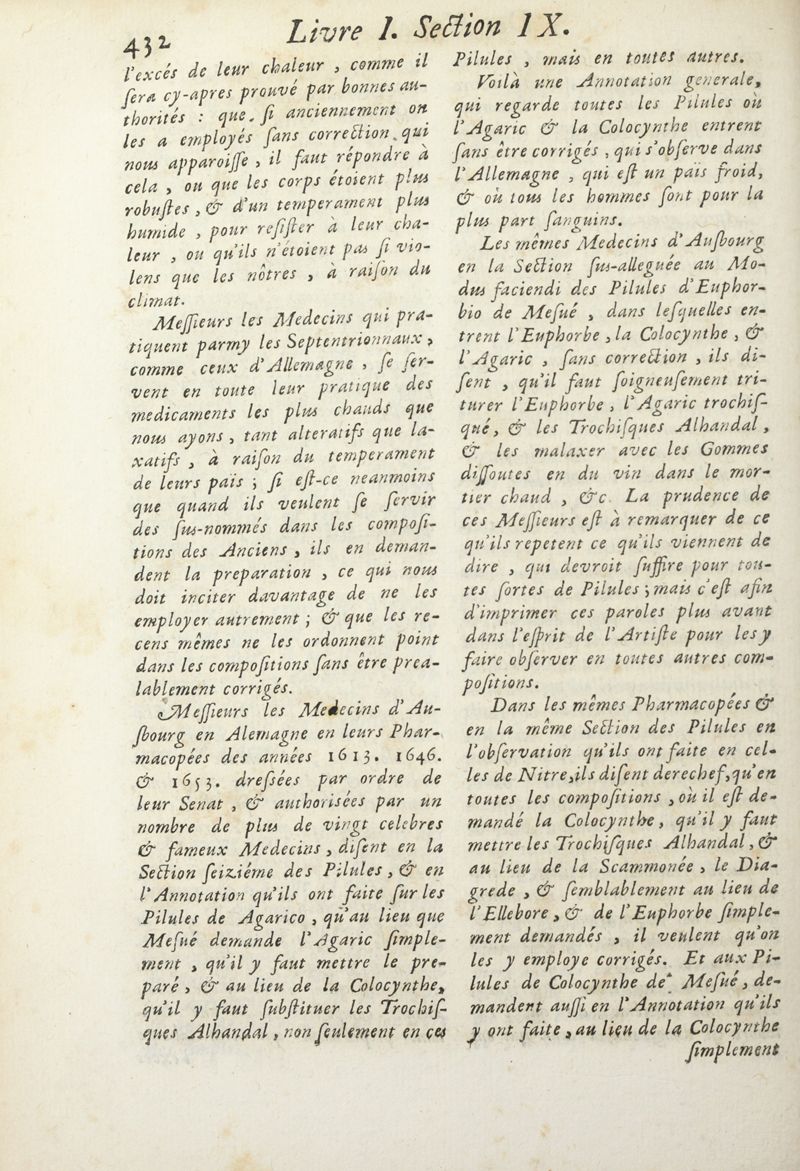 432
Livre I. Section IX.
l'excés de leur chaleur , comme il
ſera cy-apres prouvé par bonnes au-
thorités : que, ſi anciennement on
les a employés ſans correction, qui
nous apparoiſſe , il faut répondre à
cela , ou que les corps étoient plus
robuſtes , & d'un temperament plus
humide , pour reſiſter à leur cha-
leur , ou qu'ils n'étoient pas ſi vio-
lens que les nôtres , à raiſon du
climat.
Meſſieurs les Medecins qui pra-
tiquent parmy les Septentrionnaux ,
comme ceux d'Allemagne , ſe ſer-
vent en toute leur pratique des
medicaments les plus chauds que
nous ayons , tant alteratifs que la-
xatifs , à raiſon du temperament
de leurs païs ; ſi eſt-ce neanmoins
que quand ils veulent ſe ſervir
des ſus-nommés dans les compoſi-
tions des Anciens , ils en deman-
dent la preparation , ce qui nous
doit inciter davantage de ne les
employer autrement ; & que les re-
cens mêmes ne les ordonnent point
dans les compoſitions ſans être prea-
lablement corrigés.
Meſſieurs les Medecins d'Au-
ſbourg en Alemagne en leurs Phar-
macopées des années 1613. 1646.
& 1653. dreſsées par ordre de
leur Senat , & authorisées par un
nombre de plus de vingt celebres
& fameux Medecins , diſent en la
Section ſeiziéme des Pilules , & en
l'Annotation qu'ils ont faite ſur les
Pilules de Agarico , qu'au lieu que
Meſué demande l'Agaric ſimple-
ment , qu'il y faut mettre le pre-
paré , & au lieu de la Colocynthe,
qu'il y faut ſubſtituer les Trochiſ-
ques Alhandal , non ſeulement en ces
Pilules , mais en toutes autres.
Voilà une Annotation generale,
qui regarde toutes les Pilules où
l'Agaric & la Colocynthe entrent
ſans être corrigés , qui s'obſerve dans
l'Allemagne , qui eſt un païs froid,
& où tous les hommes ſont pour la
plus part ſanguins.
Les mêmes Medecins d'Auſbourg
en la Section ſus-alleguée au Mo-
dus faciendi des Pilules d'Euphor-
bio de Meſué , dans leſquelles en-
trent l'Euphorbe , la Colocynthe , &
l'Agaric , ſans correction , ils di-
ſent , qu'il faut ſoigneuſement tri-
turer l'Euphorbe , l'Agaric trochiſ-
qué, & les Trochiſques Alhandal ,
& les malaxer avec les Gommes
diſſoutes en du vin dans le mor-
tier chaud , &c. La prudence de
ces Meſſieurs eſt à remarquer de ce
qu'ils repetent ce qu'ils viennent de
dire , qui devroit ſuffire pour tou-
tes ſortes de Pilules ; mais c'eſt afin
d'imprimer ces paroles plus avant
dans l'eſprit de l'Artiſte pour les y
faire obſerver en toutes autres com-
poſitions.
Dans les mêmes Pharmacopées &
en la même Section des Pilules en
l'obſervation qu'ils ont faite en cel-
les de Nitre,ils diſent derechef,qu'en
toutes les compoſitions , où il eſt de-
mandé la Colocynthe, qu'il y faut
mettre les Trochiſques Alhandal , &
au lieu de la Scammonée , le Dia-
grede , & ſemblablement au lieu de
l'Ellebore , & de l'Euphorbe ſimple-
ment demandés , il veulent qu'on
les y employe corrigés. Et aux Pi-
lules de Colocynthe de* Meſué , de-
mandent auſſi en l'Annotation qu'ils
y ont faite , au lieu de la Colocynthe
ſimplement